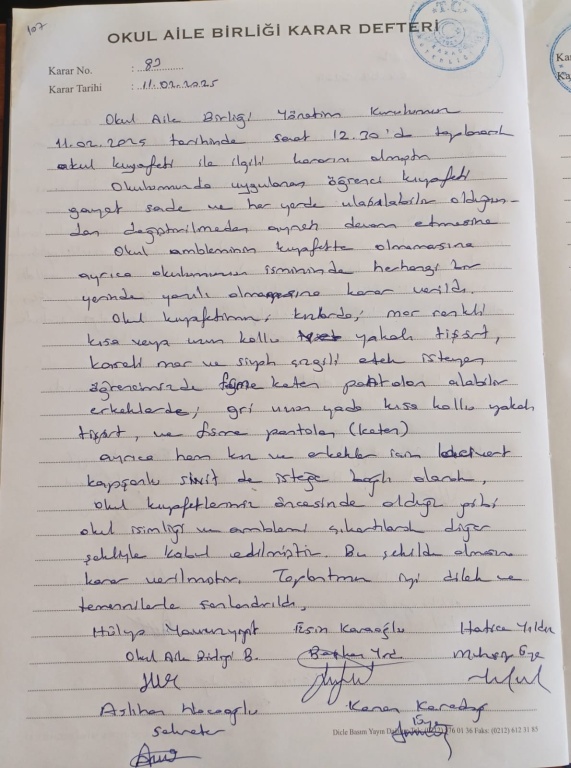 107
OKUL AİLE BİRLİĞİ KARAR DEFTERİ
T.C.
Karar No. : 82
Karar Tarihi : 11.02.2025
Okul Aile Birliği Yönetim Kurulumuz
11.02.2025 tarihinde saat 12.30'd toplanarak
okul kıyafeti ile ilgili kararını almıştır
Okulumuzda uygulanan öğrenci kıyafeti
gayet sade ve her yerde ulabalabilir olduğun-
dan değiştirilmeden aynen devam etmesine
Okul ambleminin kıyafette olmamasına
ayrıca okulumuzun ismininde herhangi bir
yerinde yazılı olmamasına karar verildi.
Okul kıyafetimiz; kızlarda; mor renkli
kısa veya uzun kollu yakalı tişört,
kareli mor ve siyah çizgili etek isteyen
öğrencimizde füme keten pantolon alabilir
erkeklerde; gri uzun yada kısa kollu yakalı
tişört, ve füme pantolon (keten)
ayrıca hem kız ve erkekler için lacivert
kapşonlu sivit de isteğe bağlı olarak,
okul kıyafetlerimiz öncesinde olduğu gibi
okul isimliği ve amblemi çıkartılarak diğer
şekliyle kabul edilmiştir. Bu şekilde olmasına
karar verilmiştir. Toplantımız iyi dilek ve
temennilerle sonlandırıldı.
Hülya Karaoğlu Hatice Yıldız
Okul Aile Birliği B. Başkan Yrd. Muhasip Üye
Aslıhan Kenan Karadağ
Sekreter Üye
Dicle Basım Yayın 612 31 85